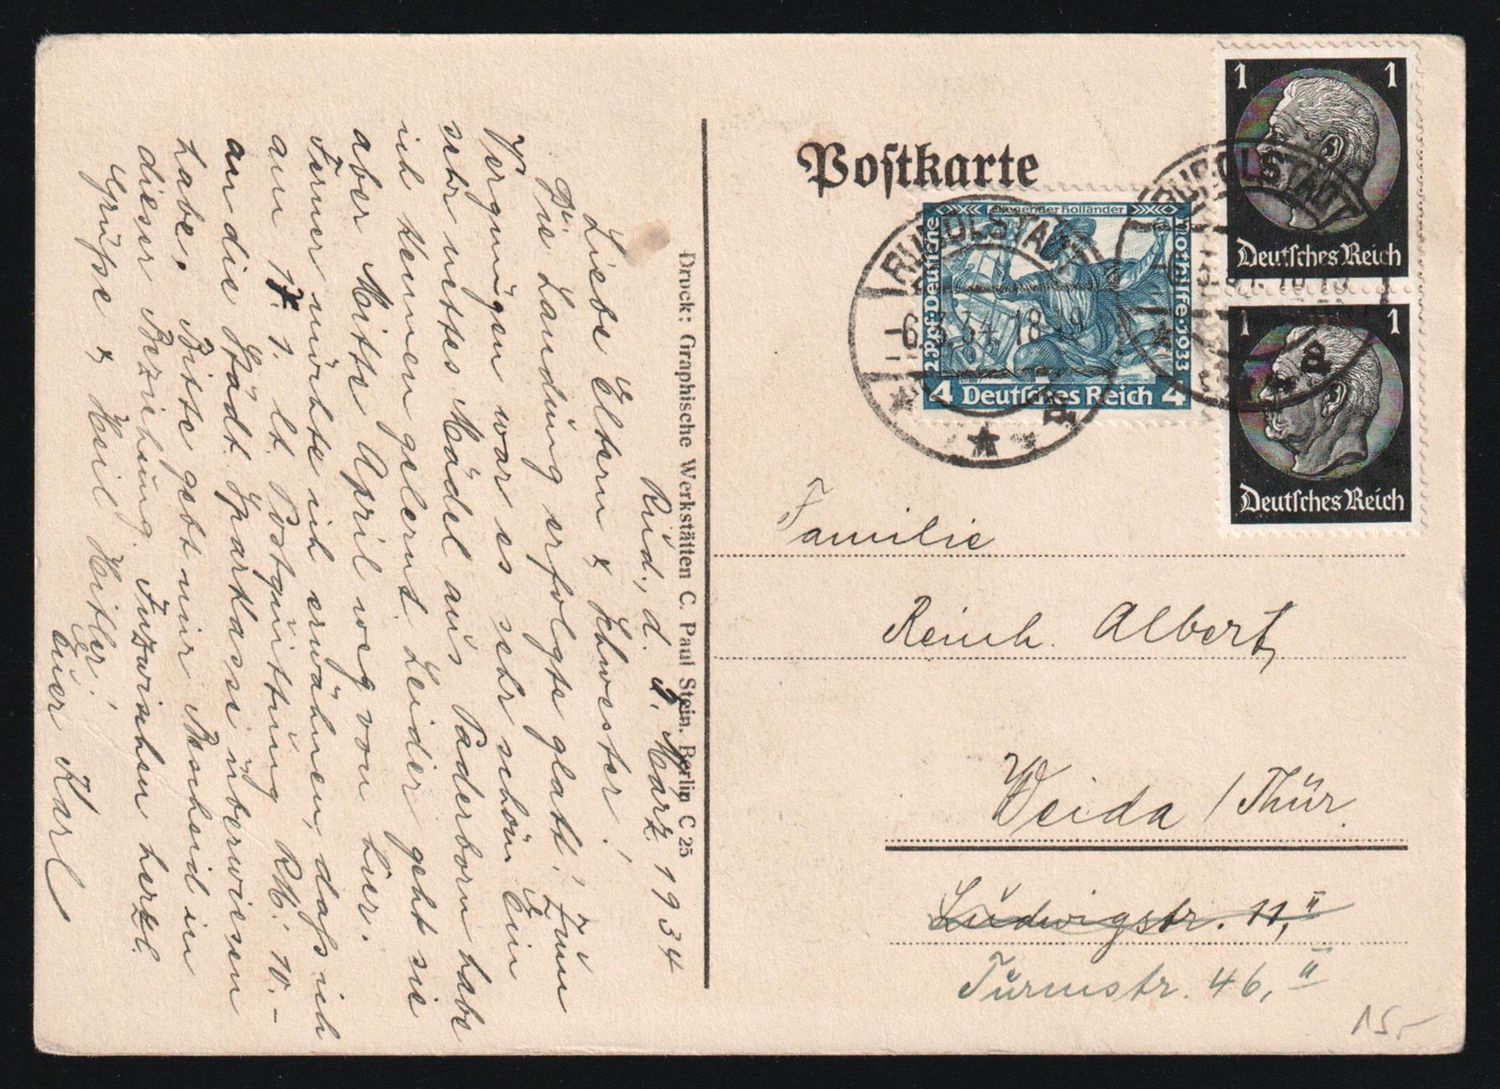 Postkarte
1 1
Deutsches Reich
1 1
Deutsches Reich
Fliegender Holländer
2 Pf. Deutsche
Nothilfe · 1933
4 Deutsches Reich 4
RUDOLSTADT
6.3.34. 18
a
RUDOLSTADT
a
Druck: Graphische Werkstätten C. Paul Stein. Berlin C 25
Rud., d. März 1934
Liebe Eltern & Schwester!
Die Landung erfolgte glatt! Zum
Vergnügen war es sehr schön. Ein
sehr nettes Mädel aus Paderborn habe
ich kennengelernt. Leider geht sie
aber Mitte April weg von hier.
Ferner möchte ich erwähnen, daß ich
am 1. lt. Postquittung RM. 10.-
an die Städt. Sparkasse überwiesen
habe. Bitte gebt mir Bescheid in
dieser Beziehung. Inzwischen herzl.
Grüße & Heil Hitler!
Euer Karl
Familie
Reinh. Albert,
Weida / Thür.
Ludwigstr. 11, II
Turmstr. 46, II
15.-